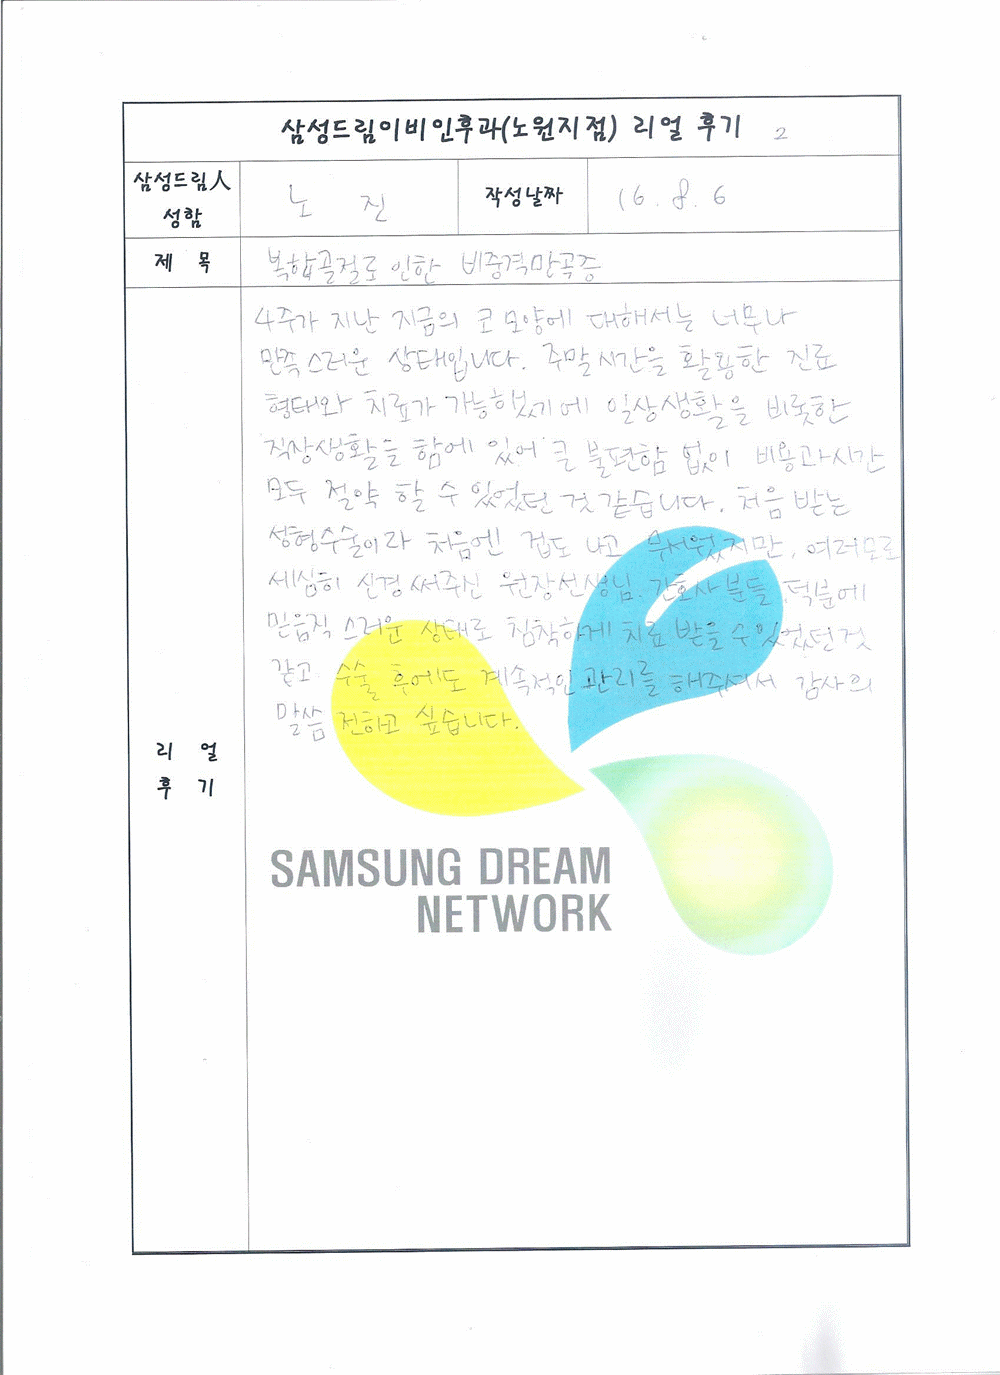 삼성드림이비인후과(노원지점) 리얼 후기 2
삼성드림人
성함
노 진
작성날짜
16. 8. 6
제 목
복합골절로 인한 비중격만곡증
4주가 지난 지금의 코 모양에 대해서는 너무나
만족스러운 상태입니다. 주말시간을 활용한 진료
형태와 치료가 가능하였기에 일상생활을 비롯한
직장생활을 함에 있어 큰 불편함 없이 비용과시간
모두 절약 할 수 있었던 것 같습니다. 처음 받는
성형수술이라 처음엔 겁도 나고 무서웠지만, 여러모로
세심히 신경써주신 원장선생님. 간호사분들 덕분에
믿음직 스러운 상태로 침착하게 치료 받을 수 있었던것
같고 수술 후에도 계속적인 관리를 해주셔서 감사의
말씀 전하고 싶습니다.
리 얼
후 기
SAMSUNG DREAM
NETWORK